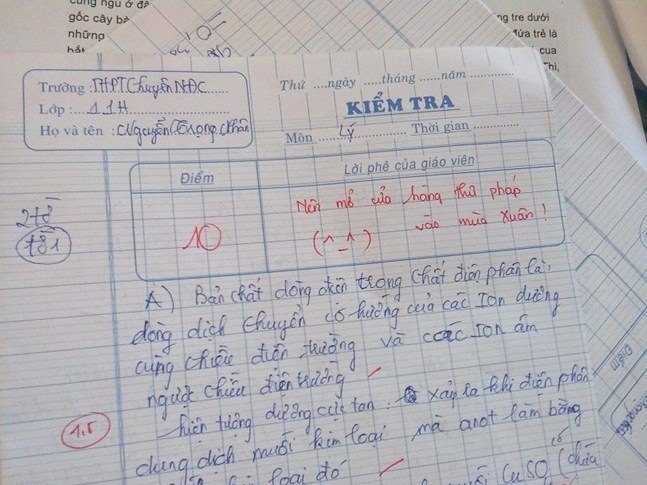 cùng ngủ ở đá
gốc cây bà
những
hát
ng tre dưới
đứa trẻ là
cua
Trường : THPT Chuyên NĐC
Lớp : 11H
Họ và tên : Nguyễn Trọng Nhân
Thứ ....ngày .....tháng ......năm
KIỂM TRA
Môn Lý Thời gian
Điểm
Lời phê của giáo viên
10
Nên mở cửa hàng thư pháp
(^_^) vào mùa Xuân !
278
1,5
A) Bản chất dòng điện trong chất điện phân là:
dòng dịch chuyển có hướng của các Ion dương
cùng chiều điện trường và các Ion âm
ngược chiều điện trường
hiện tượng dương cực tan: xảy ra khi điện phân
dung dịch muối kim loại mà anot làm bằng
loại đó
CuSO4 chứa
Điểm